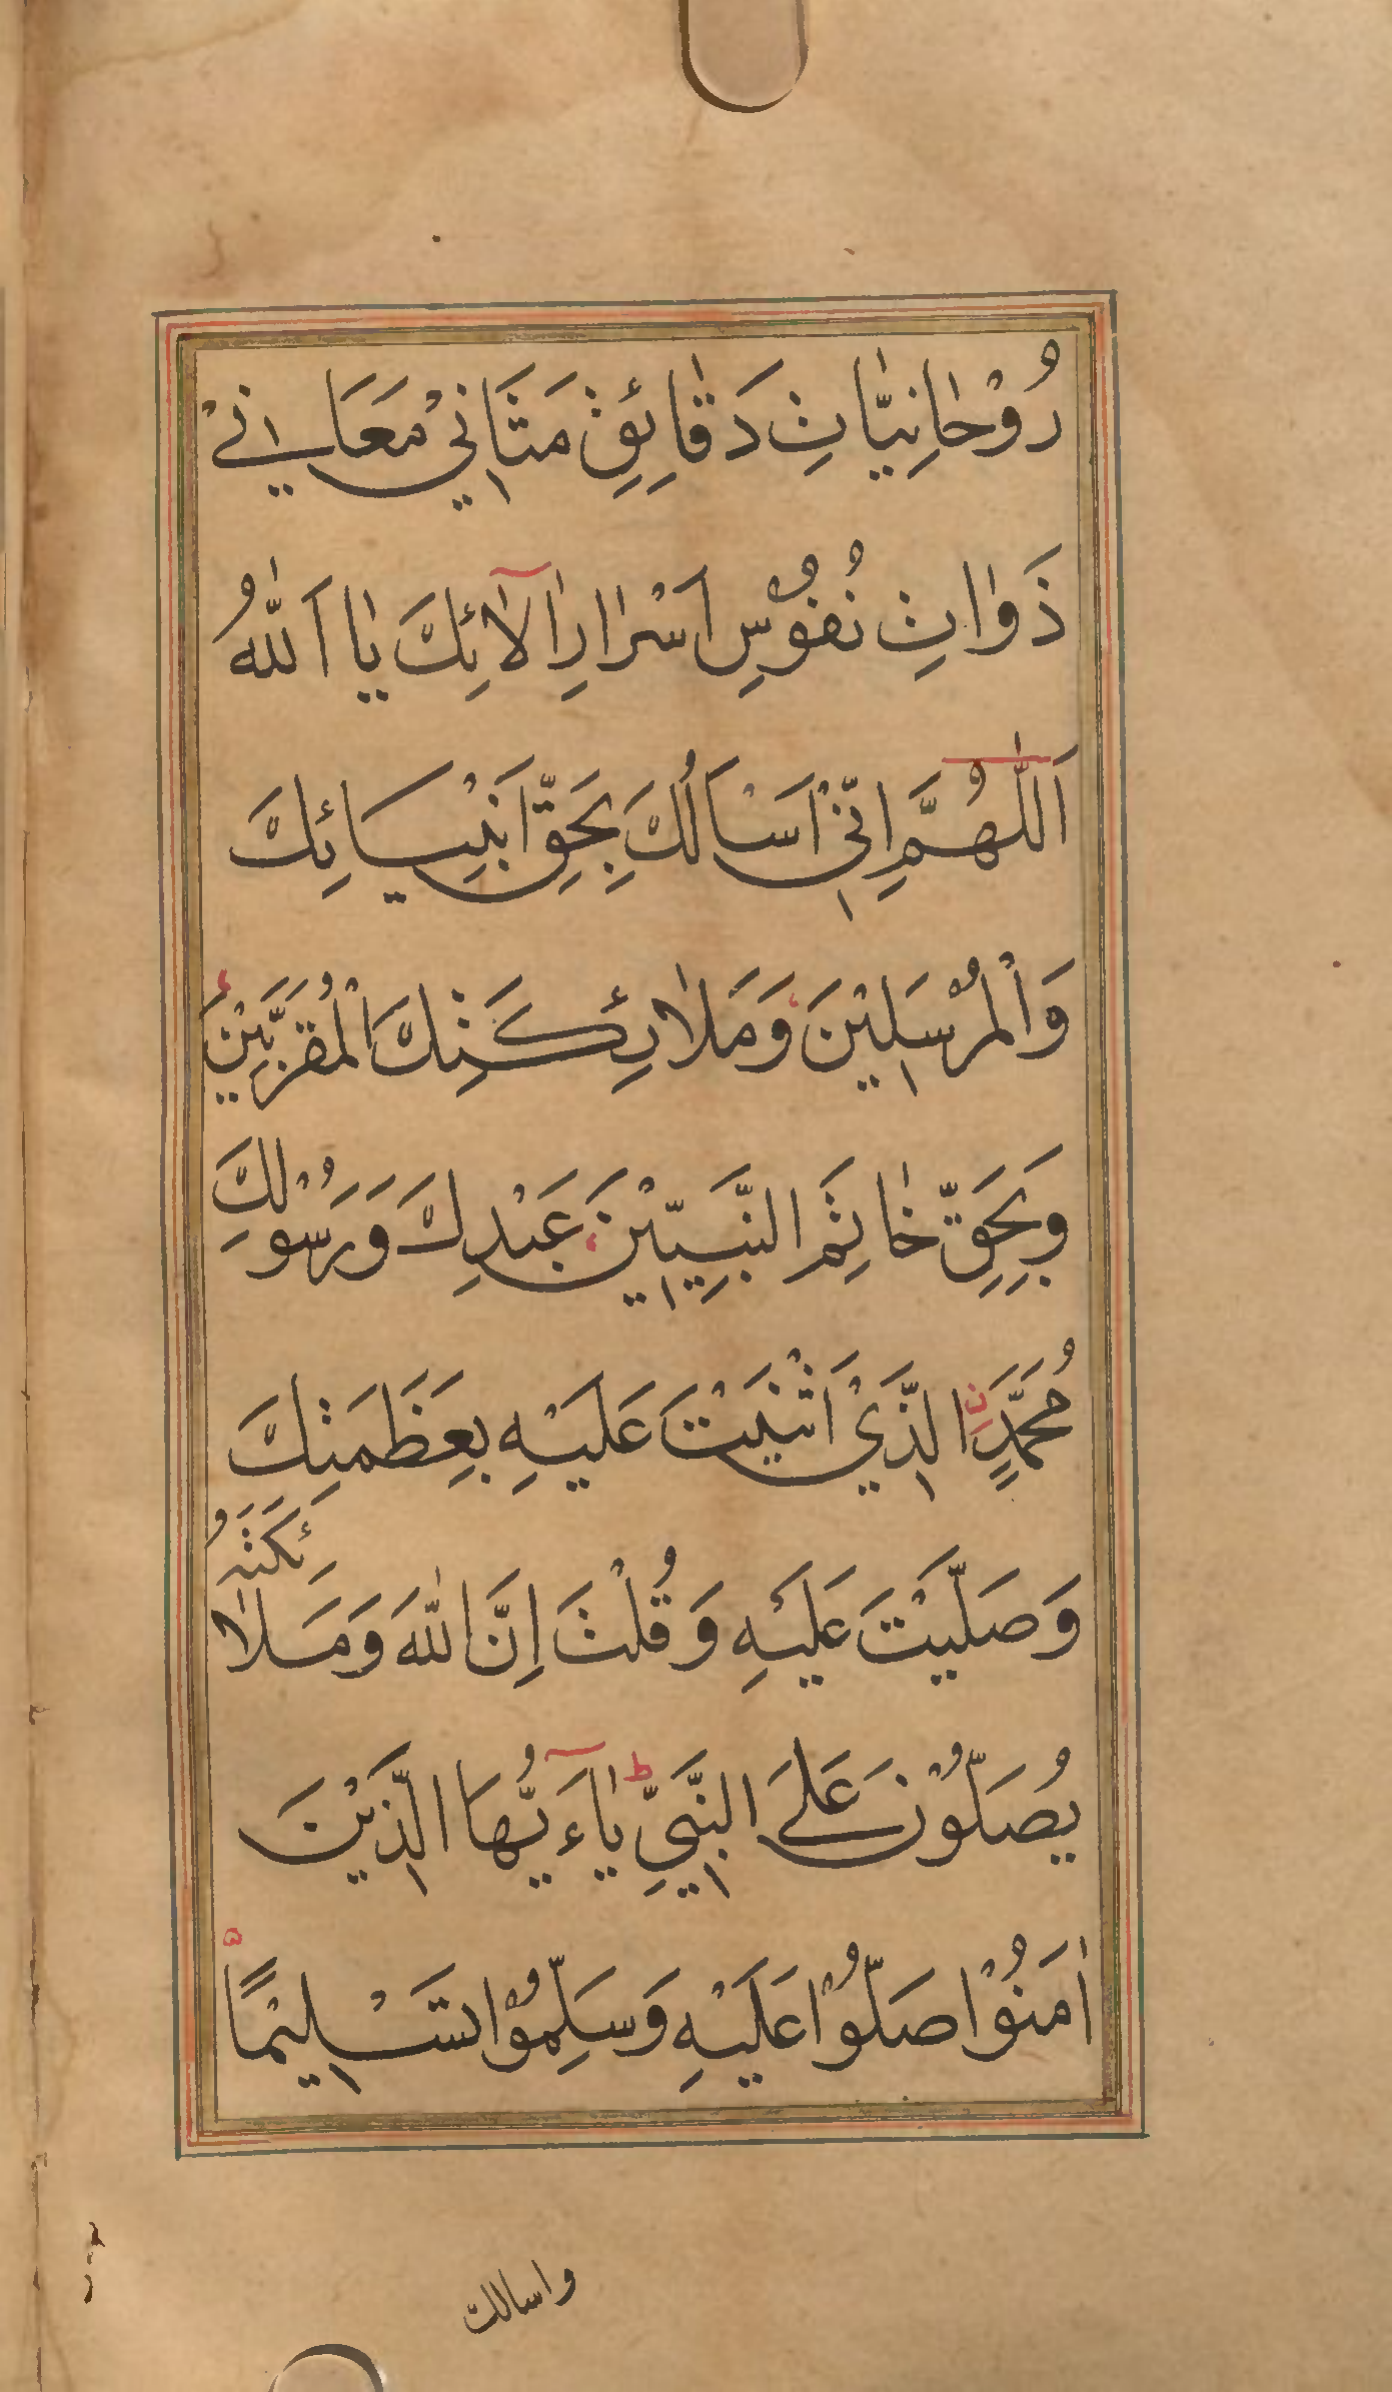 رُوْحٰانِيّٰاتِ دَقٰائِقِ مَثَانِيْ مَعَانِيْ
ذَوٰاتِ نُفُوْسِ اَسْرٰارِ اٰلٰائِكَ يٰا اَللّٰهُ
اَللّٰهُمَّ اِنِّيْ اَسْاَلُكَ بِحَقِّ اَنْبِيَائِكَ
وَالْمُرْسَلِيْنَ وَمَلٰائِكَتِكَ الْمُقَرَّبِيْنَ
وَبِحَقِّ خٰاتِمَ النَّبِيِّيْنَ عَبْدِكَ وَرَسُوْلِكَ
مُحَمَّدٍنِ الَّذِيْ اَثْنَيْتَ عَلَيْهِ بِعَظَمَتِكَ
وَصَلَّيْتَ عَلَيْهِ وَقُلْتَ اِنَّ اللّٰهَ وَمَلٰائِكَتَهُ
يُصَلُّوْنَ عَلَى النَّبِيِّ ط يٰاءَيُّهَا الَّذِيْنَ
اٰمَنُوْا صَلُّوْا عَلَيْهِ وَسَلِّمُوْا تَسْلِيْمًا
واسالك